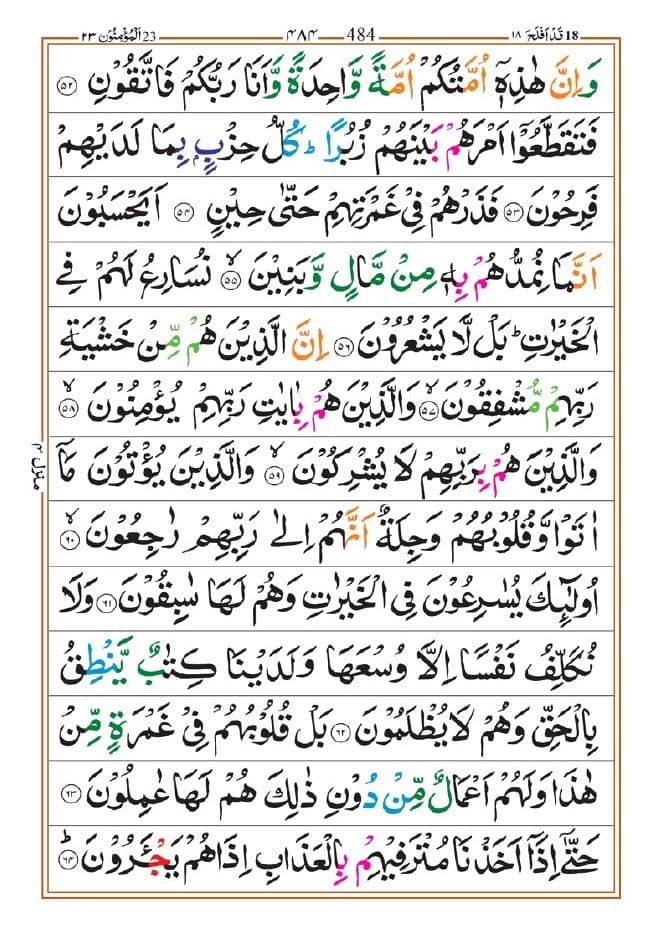 18 قَدْ اَفْلَحَ ١٨
484 ٤٨٤
23 اَلْمُؤْمِنُوْن ٢٣
وَاِنَّ هٰذِهٖۤ اُمَّتُكُمْ اُمَّةً وَّاحِدَةً وَّاَنَا رَبُّكُمْ فَاتَّقُوْنِ ﴿٥٢﴾
فَتَقَطَّعُوْۤا اَمْرَهُمْ بَيْنَهُمْ زُبُرًا ؕ كُلُّ حِزْبٍۭ بِمَا لَدَيْهِمْ
فَرِحُوْنَ ﴿٥٣﴾ فَذَرْهُمْ فِيْ غَمْرَتِهِمْ حَتّٰى حِيْنٍ ﴿٥٤﴾ اَيَحْسَبُوْنَ
اَنَّمَا نُمِدُّهُمْ بِهٖ مِنْ مَّالٍ وَّبَنِيْنَ ۙ﴿٥٥﴾ نُسَارِعُ لَهُمْ فِي
الْخَيْرٰتِ ؕ بَلْ لَّا يَشْعُرُوْنَ ﴿٥٦﴾ اِنَّ الَّذِيْنَ هُمْ مِّنْ خَشْيَةِ
رَبِّهِمْ مُّشْفِقُوْنَ ۙ﴿٥٧﴾ وَالَّذِيْنَ هُمْ بِاٰيٰتِ رَبِّهِمْ يُؤْمِنُوْنَ ۙ﴿٥٨﴾
وَالَّذِيْنَ هُمْ بِرَبِّهِمْ لَا يُشْرِكُوْنَ ۙ﴿٥٩﴾ وَالَّذِيْنَ يُؤْتُوْنَ مَاۤ
اٰتَوْا وَّقُلُوْبُهُمْ وَجِلَةٌ اَنَّهُمْ اِلٰى رَبِّهِمْ رٰجِعُوْنَ ۙ﴿٦٠﴾
اُولٰٓئِكَ يُسٰرِعُوْنَ فِي الْخَيْرٰتِ وَهُمْ لَهَا سٰبِقُوْنَ ﴿٦١﴾ وَلَا
نُكَلِّفُ نَفْسًا اِلَّا وُسْعَهَا وَلَدَيْنَا كِتٰبٌ يَّنْطِقُ
بِالْحَقِّ وَهُمْ لَا يُظْلَمُوْنَ ﴿٦٢﴾ بَلْ قُلُوْبُهُمْ فِيْ غَمْرَةٍ مِّنْ
هٰذَا وَلَهُمْ اَعْمَالٌ مِّنْ دُوْنِ ذٰلِكَ هُمْ لَهَا عٰمِلُوْنَ ﴿٦٣﴾
حَتّٰۤى اِذَاۤ اَخَذْنَا مُتْرَفِيْهِمْ بِالْعَذَابِ اِذَا هُمْ يَجْـَٔرُوْنَ ؕ﴿٦٤﴾
منزل ٤